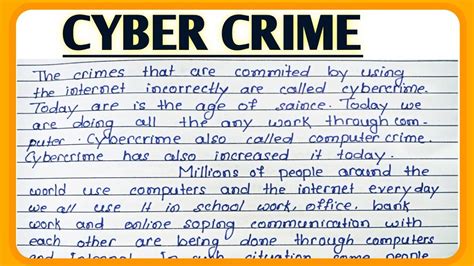 CYBER CRIME
The crimes that are commited by using
the internet incorrectly are called cybercrime.
Today are is the age of saince. Today we
are doing all the any work through com-
puter. Cybercrime also called computer crime.
Cybercrime has also increased it today.
Millions of people around the
world use computers and the internet every day
we all use it in school work, office, bank
work and online soping communication with
each other are being done through computers
and Internet. In such situation some people